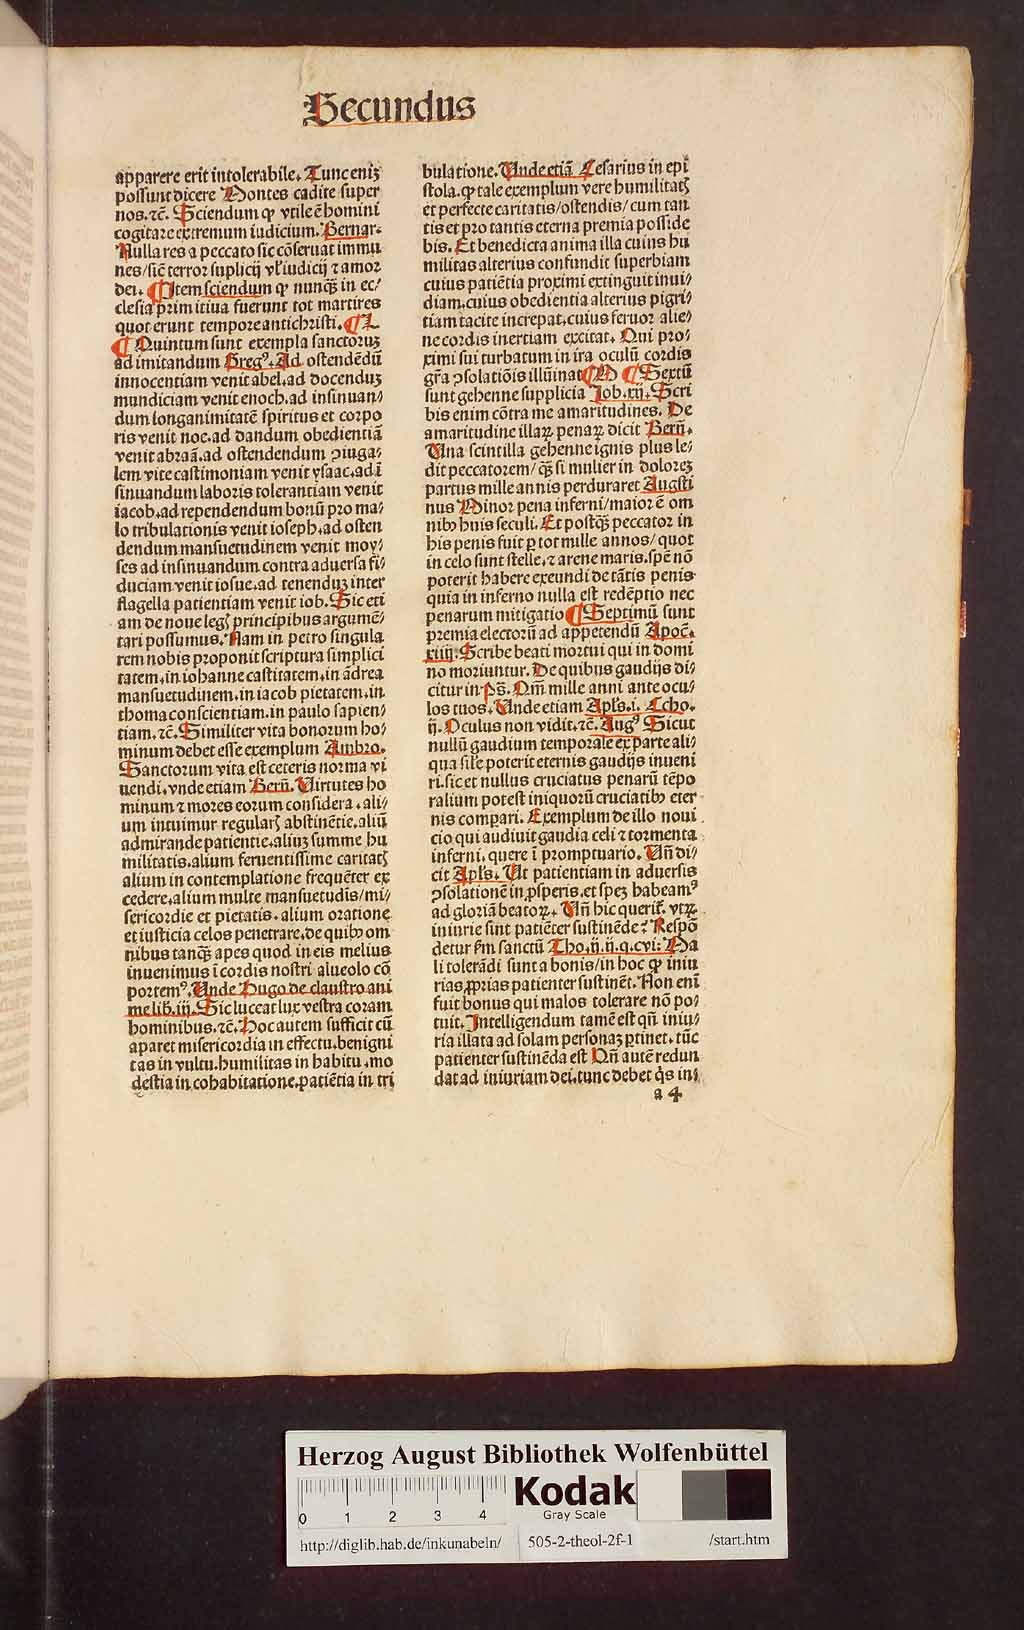 Secundus
apparere erit intolerabile. Tunc eniz
possunt dicere Montes cadite super
nos. ⁊c̃. Sciendum ꝙ vtile ē homini
cogitare extremum iudicium. Bernar.
Nulla res a peccato sic cōseruat immu
nes/sic̄ terror suplicij vł iudicij ⁊ amor
dei. ¶ Item sciendum ꝙ nunqȝ in ec/
clesia primitiua fuerunt tot martires
quot erunt tempore antichristi. ¶ L
¶ Quintum sunt exempla sanctoruȝ
ad imitandum Gregꝰ. Ad ostendēdū
innocentiam venit abel. ad docenduȝ
mundiciam venit enoch. ad insinuan/
dum longanimitatē spiritus et corpo
ris venit noe. ad dandum obedientiā
venit abraā. ad ostendendum ꝯiuga/
lem vite castimoniam venit ysaac. ad ī
sinuandum laboris tolerantiam venit
iacob. ad rependendum bonū pro ma/
lo tribulationis venit ioseph. ad osten
dendum mansuetudinem venit moy/
ses ad insinuandum contra aduersa fi/
duciam venit iosue. ad tenenduȝ inter
flagella patientiam venit iob. Sic eti
am de noue legꝭ principibus argumē/
tari possumus. Nam in petro singula
rem nobis proponit scriptura simplici
tatem. in iohanne castitatem. in ādrea
mansuetudinem. in iacob pietatem. in
thoma conscientiam. in paulo sapien/
tiam. ⁊c̃. Similiter vita bonorum ho/
minum debet esse exemplum Ambro.
Sanctorum vita est ceteris norma vi
uendi. vnde etiam Berñ. Virtutes ho
minum ⁊ mores eorum considera. ali/
um intuimur regularꝭ abstinētie. aliū
admirande patientie. aliuȝ summe hu
militatis. alium feruentissime caritatꝭ
alium in contemplatione frequēter ex
cedere. alium multe mansuetudis/mi/
sericordie et pietatis. alium oratione
et iusticia celos penetrare. de quibꝫ om
nibus tanqȝ apes quod in eis melius
inuenimus ī cordis nostri alueolo cō
portemꝰ. Unde Hugo de claustro ani
me lib. iij. Sic luceat lux vestra coram
hominibus. ⁊c̃. Hoc autem sufficit cū
aparet misericordia in effectu. benigni
tas in vultu. humilitas in habitu. mo
destia in cohabitatione. patiētia in tri
bulatione. Unde etiā Cesarius in epi
stola. ꝙ tale exemplum vere humilitatꝭ
et perfecte caritatis/ostendis/cum tan
tis et pro tantis eterna premia posside
bis. Et benedicta anima illa cuius hu
militas alterius confundit superbiam
cuius patiētia proximi extinguit inui/
diam. cuius obedientia alterius pigri/
tiam tacite increpat. cuius feruor alie/
ne cordis inertiam excitat. Qui pro/
ximi sui turbatum in ira oculū cordis
gr̄a ꝯsolatiōis illūinat ¶ M ¶ Sextū
sunt gehenne supplicia Job. xij. Scri
bis enim cōtra me amaritudines. De
amaritudine illaꝝ penaꝝ dicit Berñ.
Una scintilla gehenne ignis plus le/
dit peccatorem/qȝ si mulier in doloreȝ
partus mille annis perduraret Augsti
nus Minor pena inferni/maior ē om
nibꝫ huis seculi. Et postqȝ peccator in
his penis fuit ꝑ tot mille annos/quot
in celo sunt stelle. ⁊ arene maris. spē nō
poterit habere exeundi de tātis penis
quia in inferno nulla est redēptio nec
penarum mitigatio ¶ Septimū sunt
premia electorū ad appetendū Apoc̄.
xiiij. Scribe beati mortui qui in domi
no moriuntur. De quibus gaudijs di/
citur in ps̄. Qm̄ mille anni ante ocu/
los tuos. Unde etiam Apls̄. i. Ccho.
ij. Oculus non vidit. ⁊c̃. Augꝰ Sicut
nullū gaudium temporale ex parte ali/
qua sil̄e poterit eternis gaudijs inueni
ri. sic et nullus cruciatus penarū tēpo
ralium potest iniquorū cruciatibꝫ eter
nis compari. Exemplum de illo noui
cio qui audiuit gaudia celi ⁊ tormenta
inferni. quere ī promptuario. Uñ di/
cit Apls̄. Ut patientiam in aduersis
ꝯsolationē in ꝓsperis. et speȝ habeamꝰ
ad gloriā beatoꝝ. Uñ hic querit̃. vtꝝ
iniurie sint patiēter sustinēde? Respō
detur ẜm sanctū Tho. ij. ij. q. cvi: Ma
li tolerādi sunt a bonis/in hoc ꝙ iniu
rias ꝓprias patienter sustinēt. Non enī
fuit bonus qui malos tolerare nō po/
tuit. Intelligendum tamē est qñ iniu/
ria illata ad solam personaȝ ꝑtinet. tūc
patienter sustinēda est Qñ autē redun
dat ad iniuriam dei. tunc debet qͥs in/
a 4
Herzog August Bibliothek Wolfenbüttel
0 1 2 3 4
Kodak
Gray Scale
http://diglib.hab.de/inkunabeln/ 505-2-theol-2f-1 /start.htm